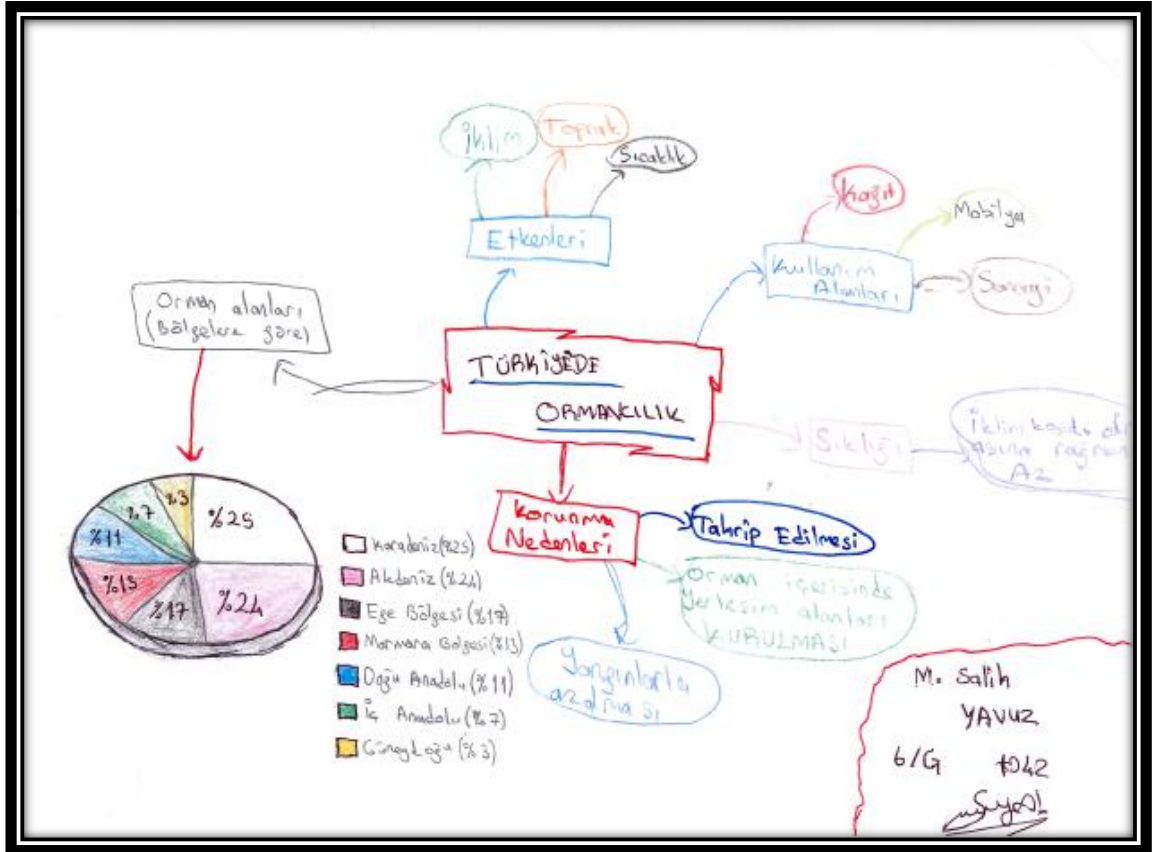 İklim
Toprak
Sıcaklık
Etkenleri
Kağıt
Mobilya
Kullanım
Alanları
Orman alanları
(Bölgelere göre)
TÜRKİYEDE
ORMANCILIK
Sıklığı
İklimi
asına rağmen
Az
Korunma
Nedenleri
Tahrip Edilmesi
Orman içerisinde
Yerleşim alanları
KURULMASI
Yangınlarla
azalması
%3
%7
%25
%11
%13
%17
%24
Karadeniz (%25)
Akdeniz (%24)
Ege Bölgesi (%17)
Marmara Bölgesi (%13)
Doğu Anadolu (%11)
İç Anadolu (%7)
Güneydoğu (%3)
M. Salih
YAVUZ
6/G 1042